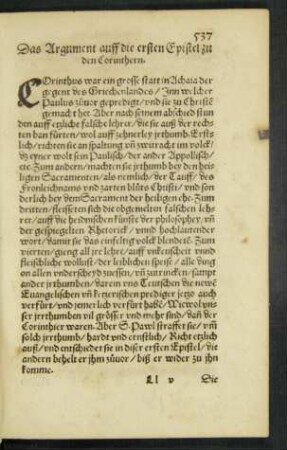 537
Das Argument auff die ersten Epistel zu
den Corinthern.
COrinthus war ein grosse statt in Achaia der
gegent des Griechenlandes / Inn welcher
Paulus zůuor gepredigt / vnd sie zu Christē
gemacht het. Aber nach seinem abschied stun
den auff etzliche falsche lehrer / die sie auß der rechs
ten ban fürten / wol auff zehnerley jrthumb. Erst
lich / richten sie an spaltung vñ zwitracht im volck /
dz eyner wolt sein Paulisch / der ander Appollisch /
ete. Zum andern / machten sie jrthumb bey den heili
gen Sacramenten / als nemlich / der Tauff / des
Fronleichnams vnd zarten blůts Christi / vnd son
derlich bey dem Sacrament der heiligen ehe. Zum
dritten / fleisseten sich die obgemelten falschen lehs
rer / auff die heidnischen künste der philosophey / vñ
der gespiegelten Rhetorick / vnnd hochlautender
wort / damit sie das einfeltig volck blendetē. Zum
vierten / gieng all jre lehre / auff vnkeuscheit vnnd
fleischliche wollust / der leiblichen speise / alle ding
on allen vnderscheyd zuessen / vñ zutrincken / sampt
ander jrthumben / darein vns Teutschen die newē
Euangelischen vñ ketzerischen prediger jetzo auch
verfürt / vnd jemerlich verfürt habē / Wiewol vns
ser jrrthumben vil grösser vnd mehr sind / dañ der
Corinthier waren. Aber S. Pawl straffet sie / vm̃
solch jrrthumb / hardt vnd ernstlich / Richt etzlich
auß / vnd entschiedet sie in diser ersten Epistel / die
andern behelt er jhm zůuor / biß er wider zu jhn
komme.
Ll v Die